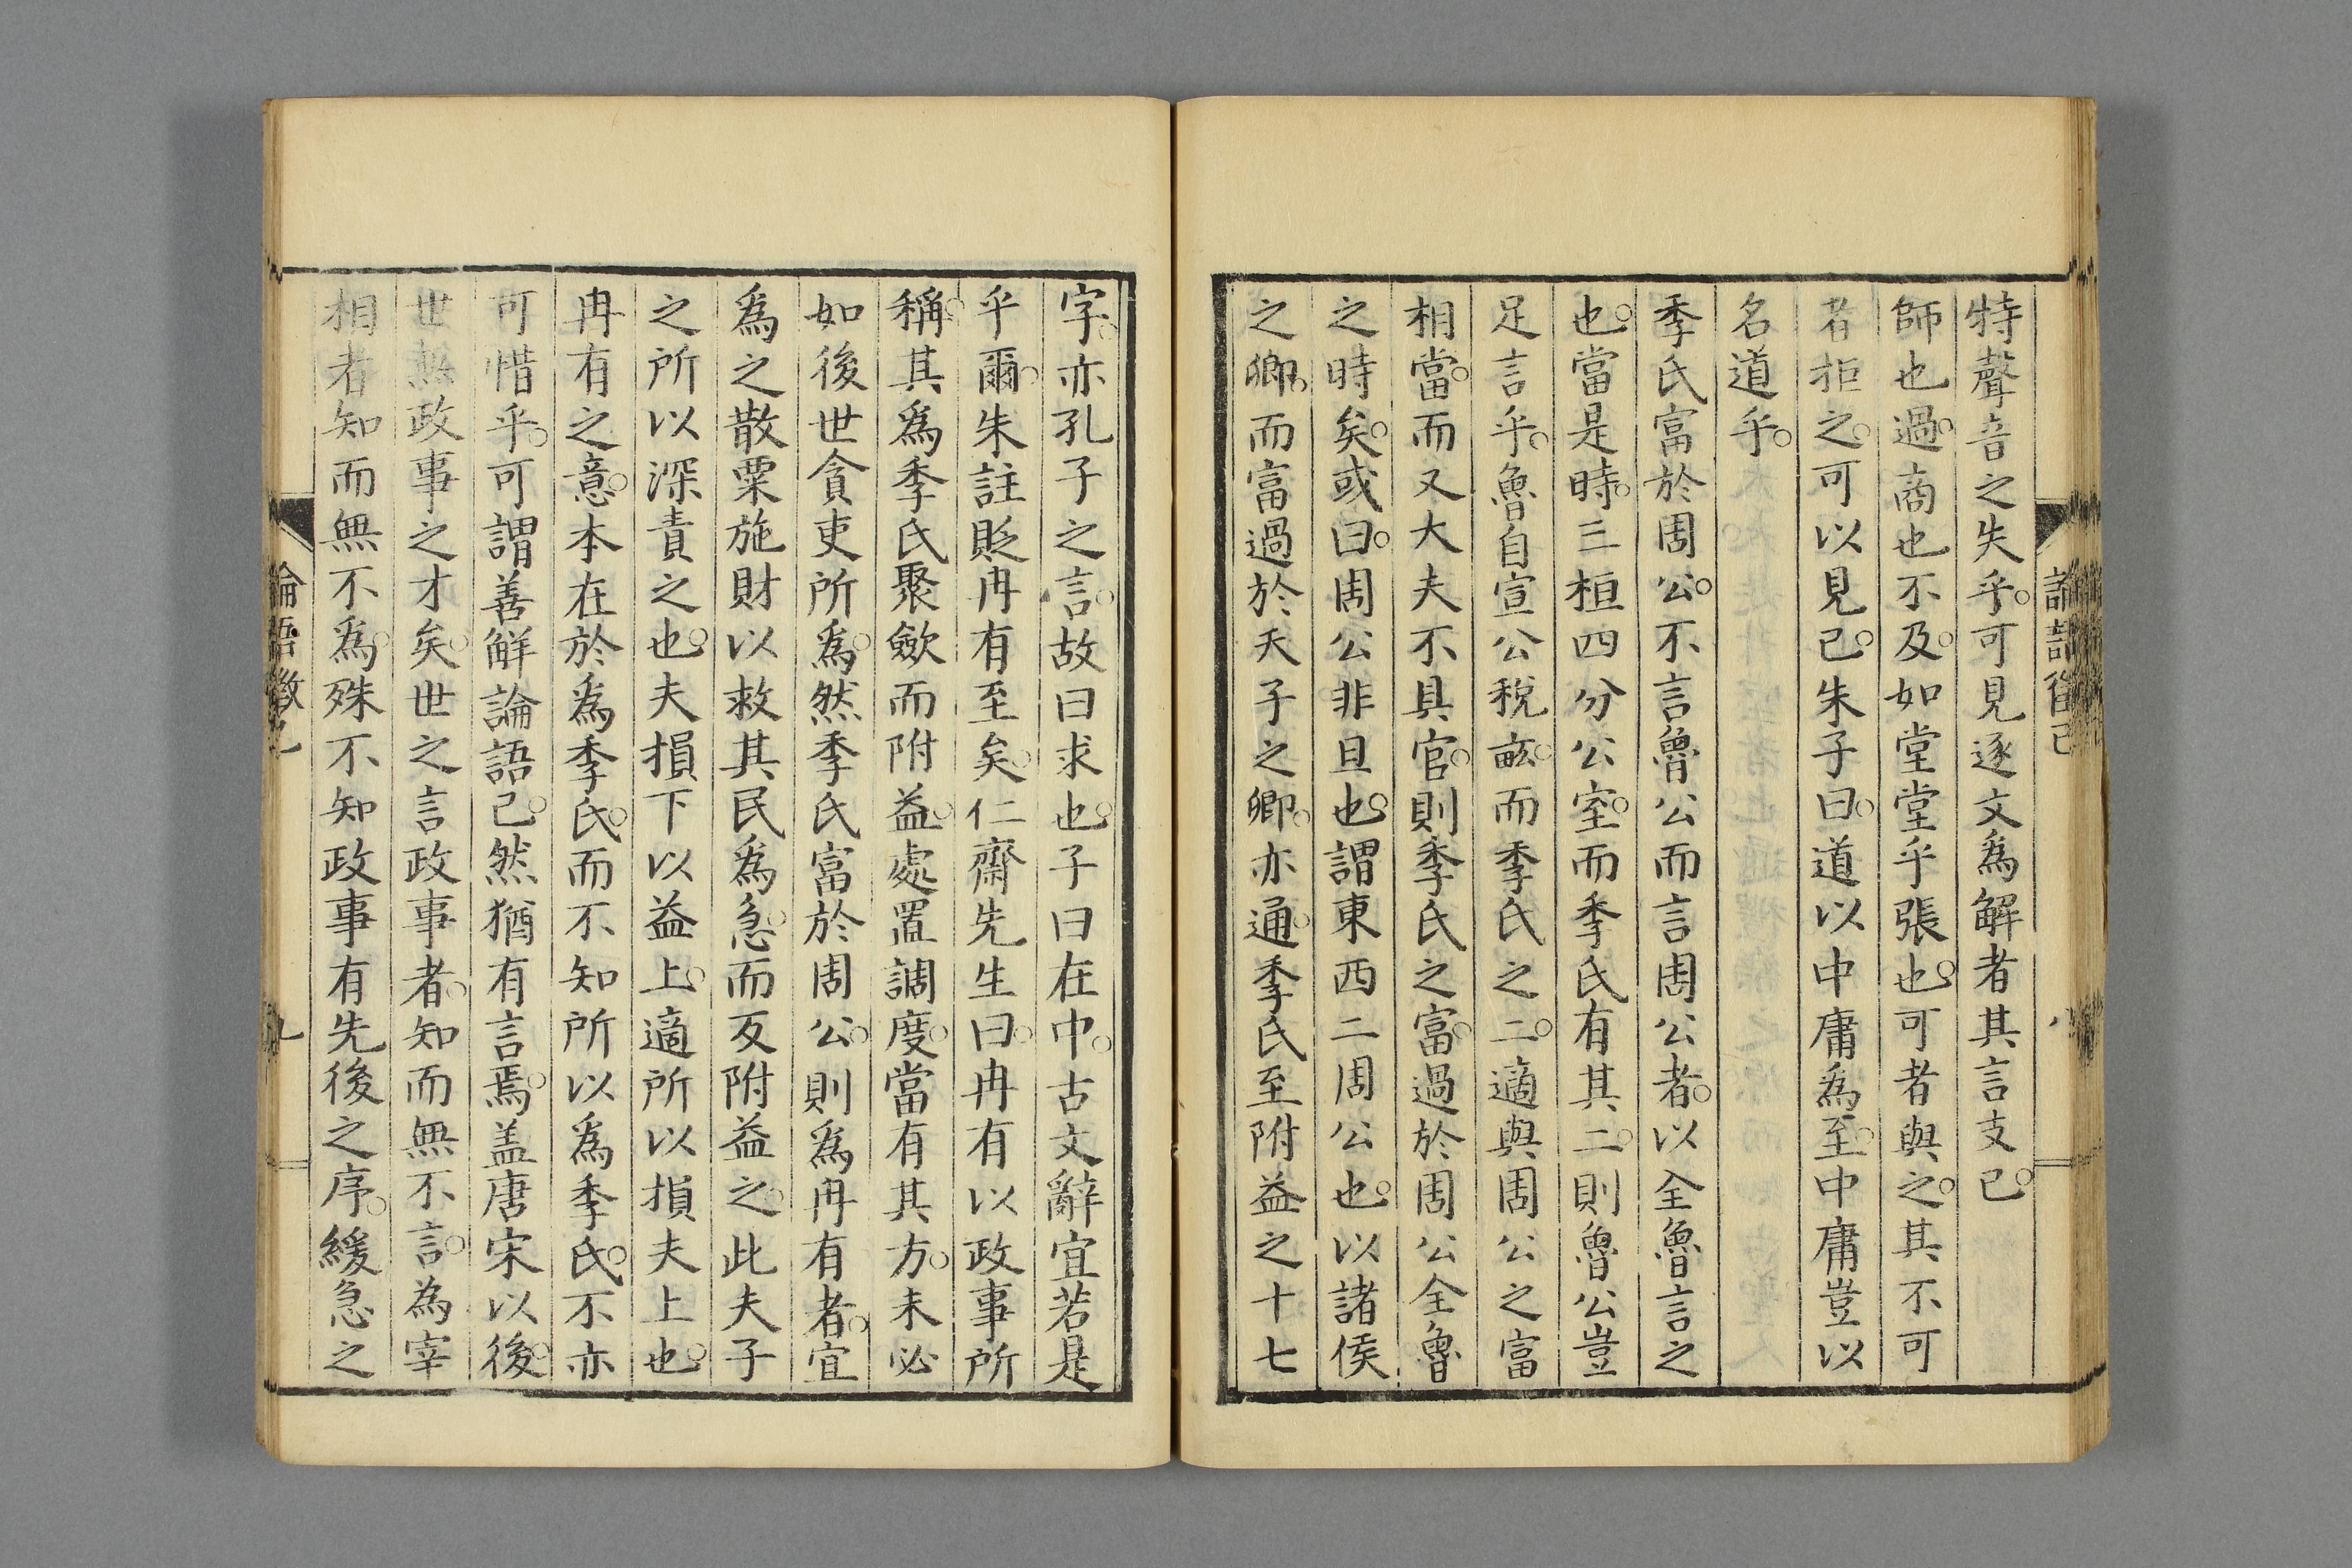 論語徵己
八
特聲音之失乎。可見逐文爲解者其言支已。
師也過。商也不及。如堂堂乎張也。可者與之。其不可
者拒之。可以見已。朱子曰。道以中庸爲至。中庸豈以
名道乎。
季氏富於周公。不言魯公而言周公者。以全魯言之
也。當是時。三桓四分公室。而季氏有其二。則魯公豈
足言乎。魯自宣公稅畝。而季氏之二。適與周公之富
相當。而又大夫不具官。則季氏之富。過於周公全魯
之時矣。或曰。周公非旦也。謂東西二周公也。以諸侯
之卿。而富過於天子之卿。亦通。季氏至附益之十七
字。亦孔子之言。故曰求也。子曰在中。古文辭宜若是
乎爾。朱註貶冉有至矣。仁齋先生曰。冉有以政事所
稱。其爲季氏聚歛而附益。處置調度。當有其方。未必
如後世貪吏所爲。然季氏富於周公。則爲冉有者。宜
爲之散粟施財以救其民爲急。而反附益之。此夫子
之所以深責之也。夫損下以益上。適所以損夫上也。
冉有之意。本在於爲季氏。而不知所以爲季氏。不亦
可惜乎。可謂善解論語已。然猶有言焉。盖唐宋以後。
世無政事之才矣。世之言政事者。知而無不言。為宰
相者知而無不爲。殊不知政事有先後之序。緩急之
論語徵己
九